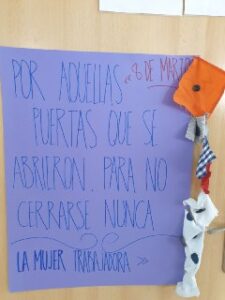 POR AQUELLAS
"8 DE MARZO
PUERTAS QUE SE
ABRIERON. PARA NO
CERRARSE NUNCA
LA MUJER TRABAJADORA »